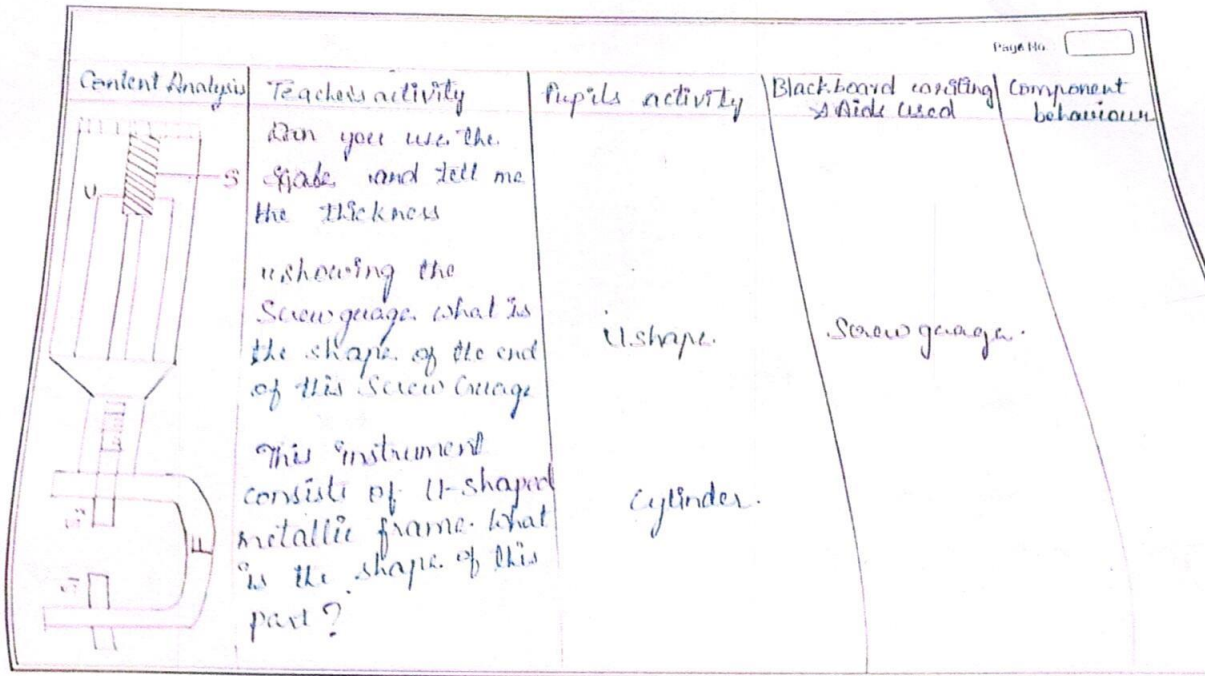 Page No
Content Analysis
Teachers activity
Pupils activity
Blackboard writing
& Aids used
Component
behaviour
S
U
you use the
and tell me
the thickness
showing the
Screw guage. what is
the shape of the end
of this Screw Guage
U shape.
Screw guage.
This instrument
consists of U-shaped
metallic frame. What
is the shape of this
part?
cylinder.